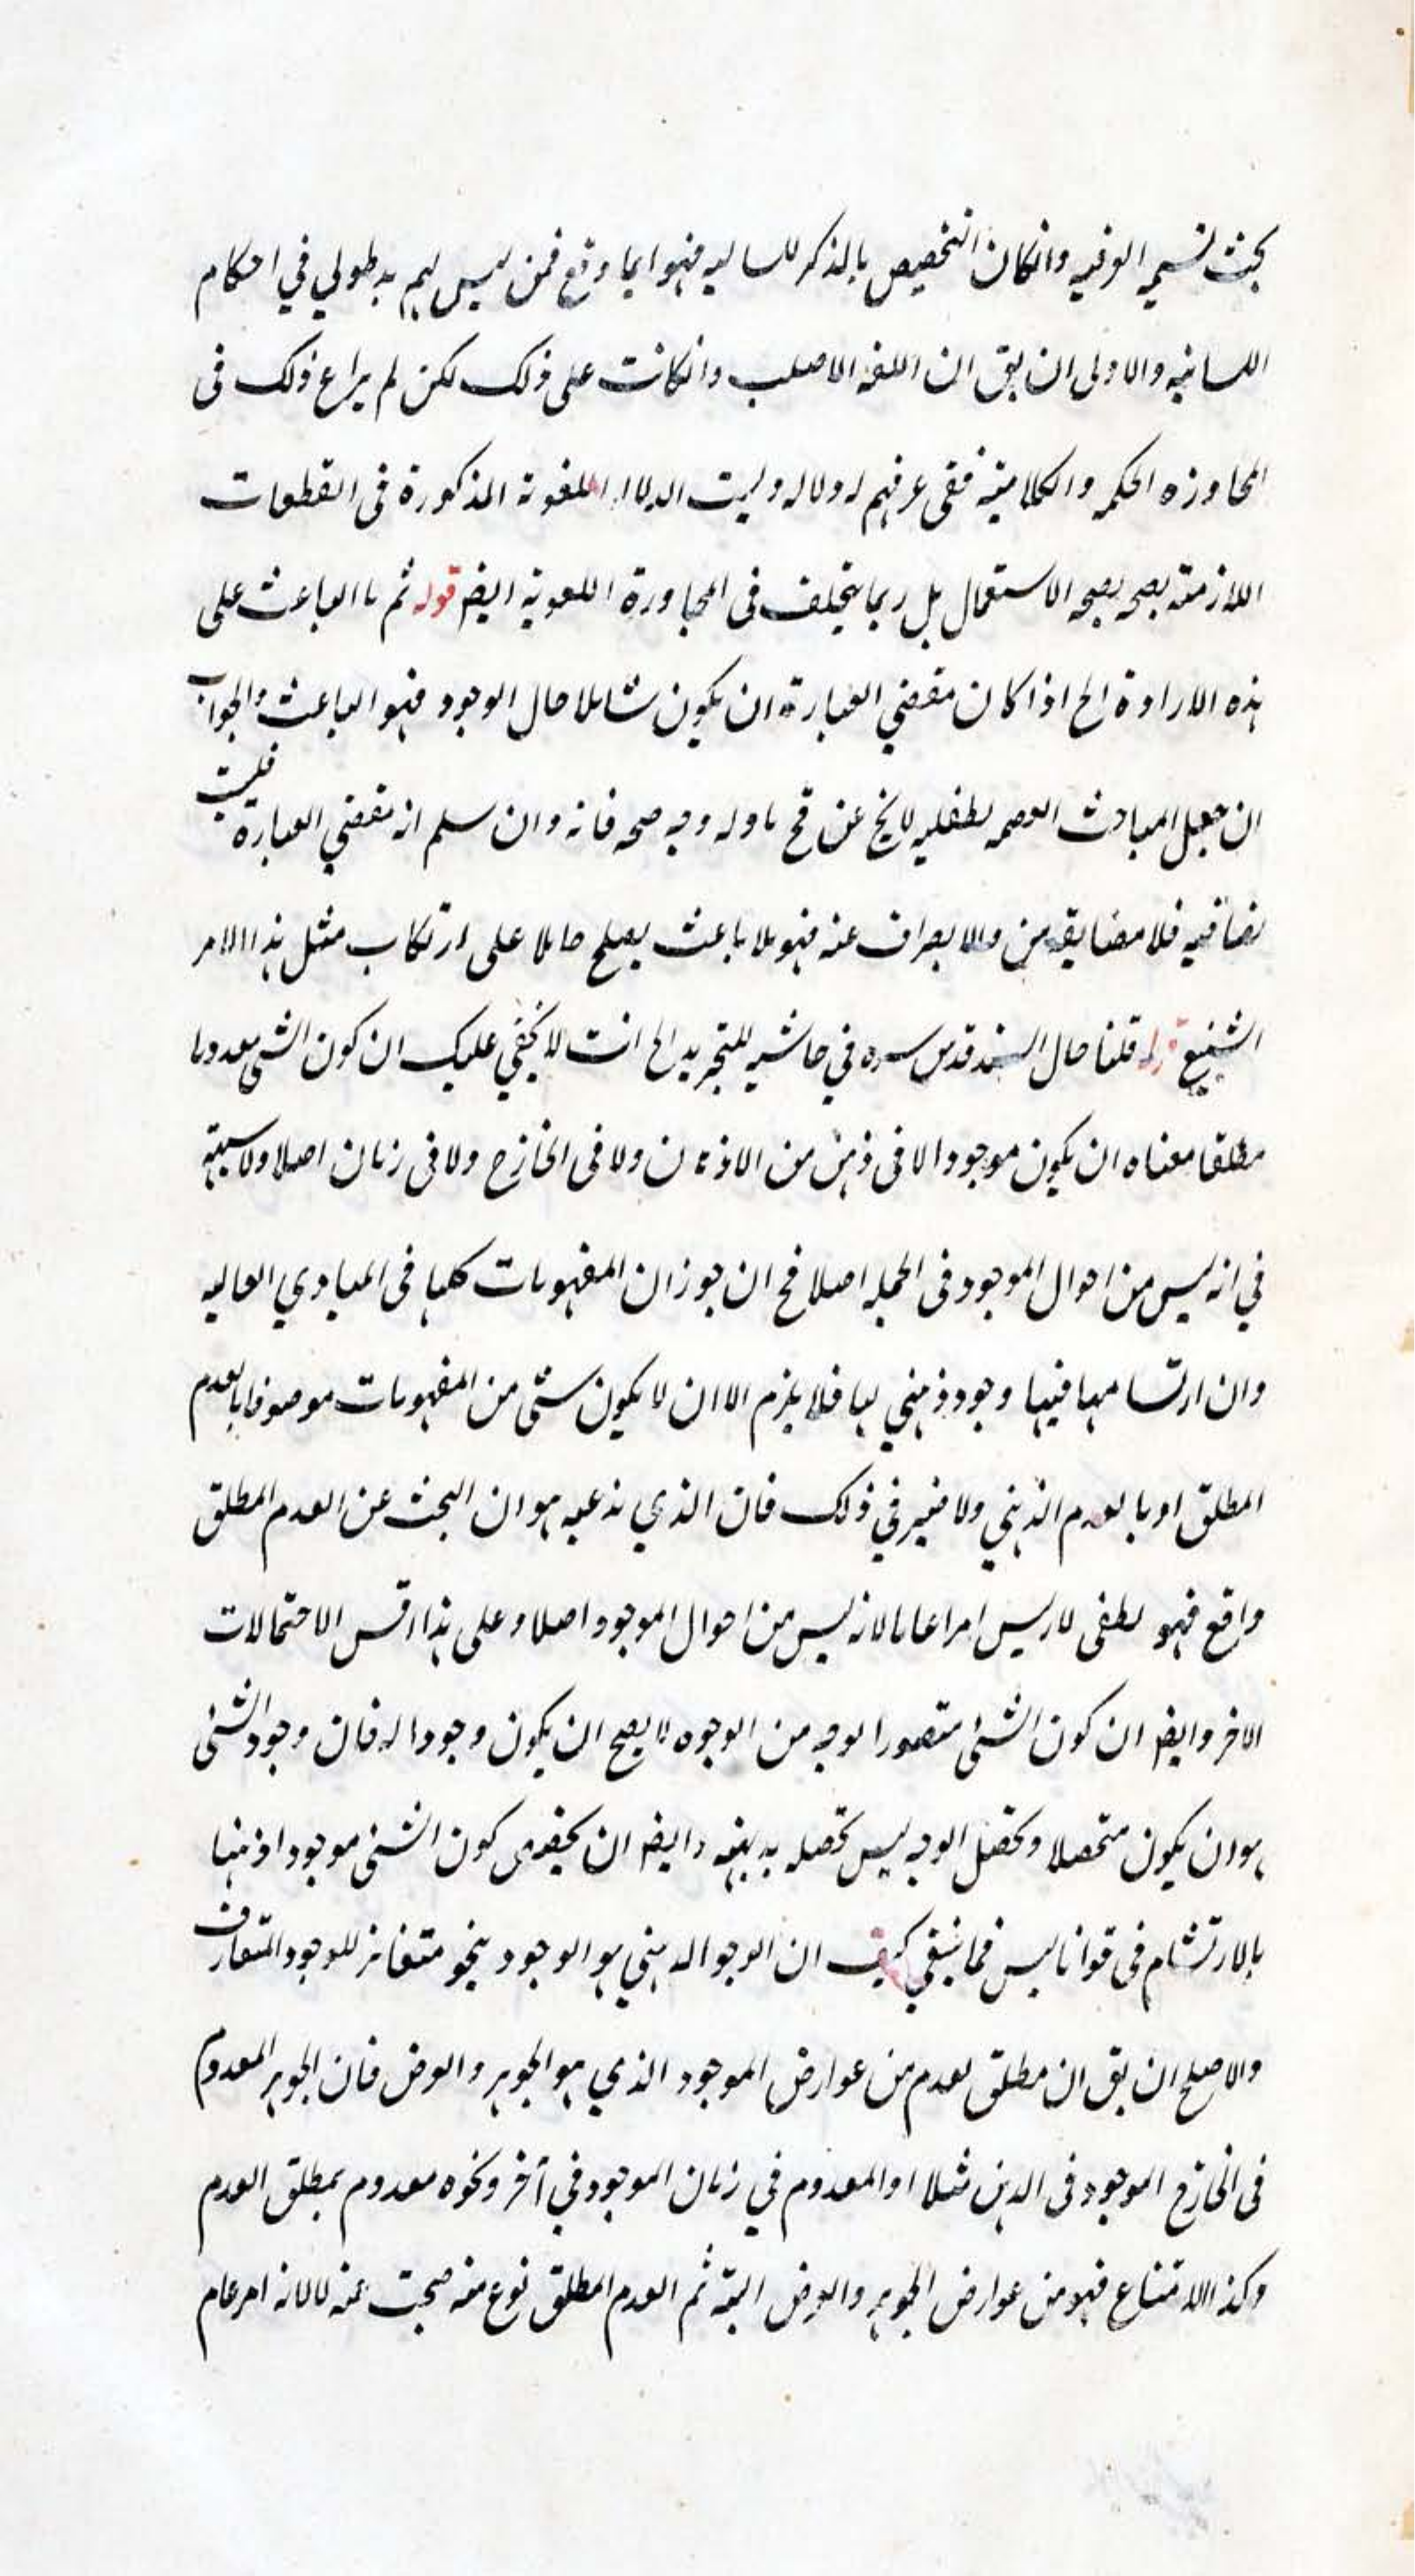 بحث تسميه الوفيه وانكان التخصيص بالذكر للساليه فهو ايما وقع فمن ليس لهم يد طولي في احكام
اللسانيه والاولى ان يق ان اللغه الاصلب وانكانت على ذلك لكن لم يراع ذلك فى
المحاوره الحكميه والكلاميته ففى عرفهم له ولاله وليت الدلا اللغوية المذكورة فى القطعات
اللازمته يصحه يصحه الاستعمال بل ربما يتخلف فى المحاورة اللغوية ايضم قوله ثم ما الباعث على
هذه الارادة الخ اذا كان مقضي العبارة ان يكون شاملا حال الوجود فهو الباعث والجواب
ان جعل المبادث العصمه لطفليه لايخ عن قح ماوله وجه صحه فانه وان سلم انه مقضي العبارة فليت
نصا فيه فلا مضايقه من والا بصراف عنه فهو بلا باعث يصلح حاملا على ارتكاب مثل هذا الامر
الشنيع قوله قلنا حال السند قدس سره في حاشيه للتجريد الخ انت لا يخفي عليك ان كون الشى معدوما
مطلقا معناه ان يكون موجودا لا فى ذهن من الاذهان ولا فى الخارج ولا فى زمان اصلا ولا سيبته
في انه ليس من احوال الموجود فى الجمله اصلا فح ان جوز ان المفهومات كلها فى المبادي العاليه
وان ارتسامها فيها وجود ذهني لها فلا يلزم الا ان لا يكون شئ من المفهومات موصوفا بالعدم
المطلق او بالعدم الذهني ولا ضير في ذلك فان الذي ندعيه هو ان البحث عن العدم المطلق
واقع فهو لطفى لا ريس امرا عاما لانه ليس من احوال الموجود اصلا وعلى هذا اقس الاحتمالات
الاخر وايضم ان كون الشئ متصورا لوجه من الوجوه لا يصح ان يكون وجودا له فان وجود الشئى
هو ان يكون متحصلا وتحصل الوجه ليس تحصله بديهيه وايضم ان يحفدى كون الشئى موجودا ذهنيا
بالارتشام فى قوانا ليس فما ينبغي كيف ان الوجو الذهني هو الوجود بنحو متغائر للوجود المتعارف
والاصلح ان يق ان مطلق لعدم من عوارض الموجود الذي هو الجوهر والعرض فان الجوهر المعدوم
فى الخارج الموجود فى الذهن مثلا او المعدوم في زمان الموجود في آخر ونحوه معدوم بمطلق العدم
وكذا الامتناع فهو من عوارض الجوهر والعرض البته ثم العدم المطلق نوع منه صحبت عنه لا لانه امر عام